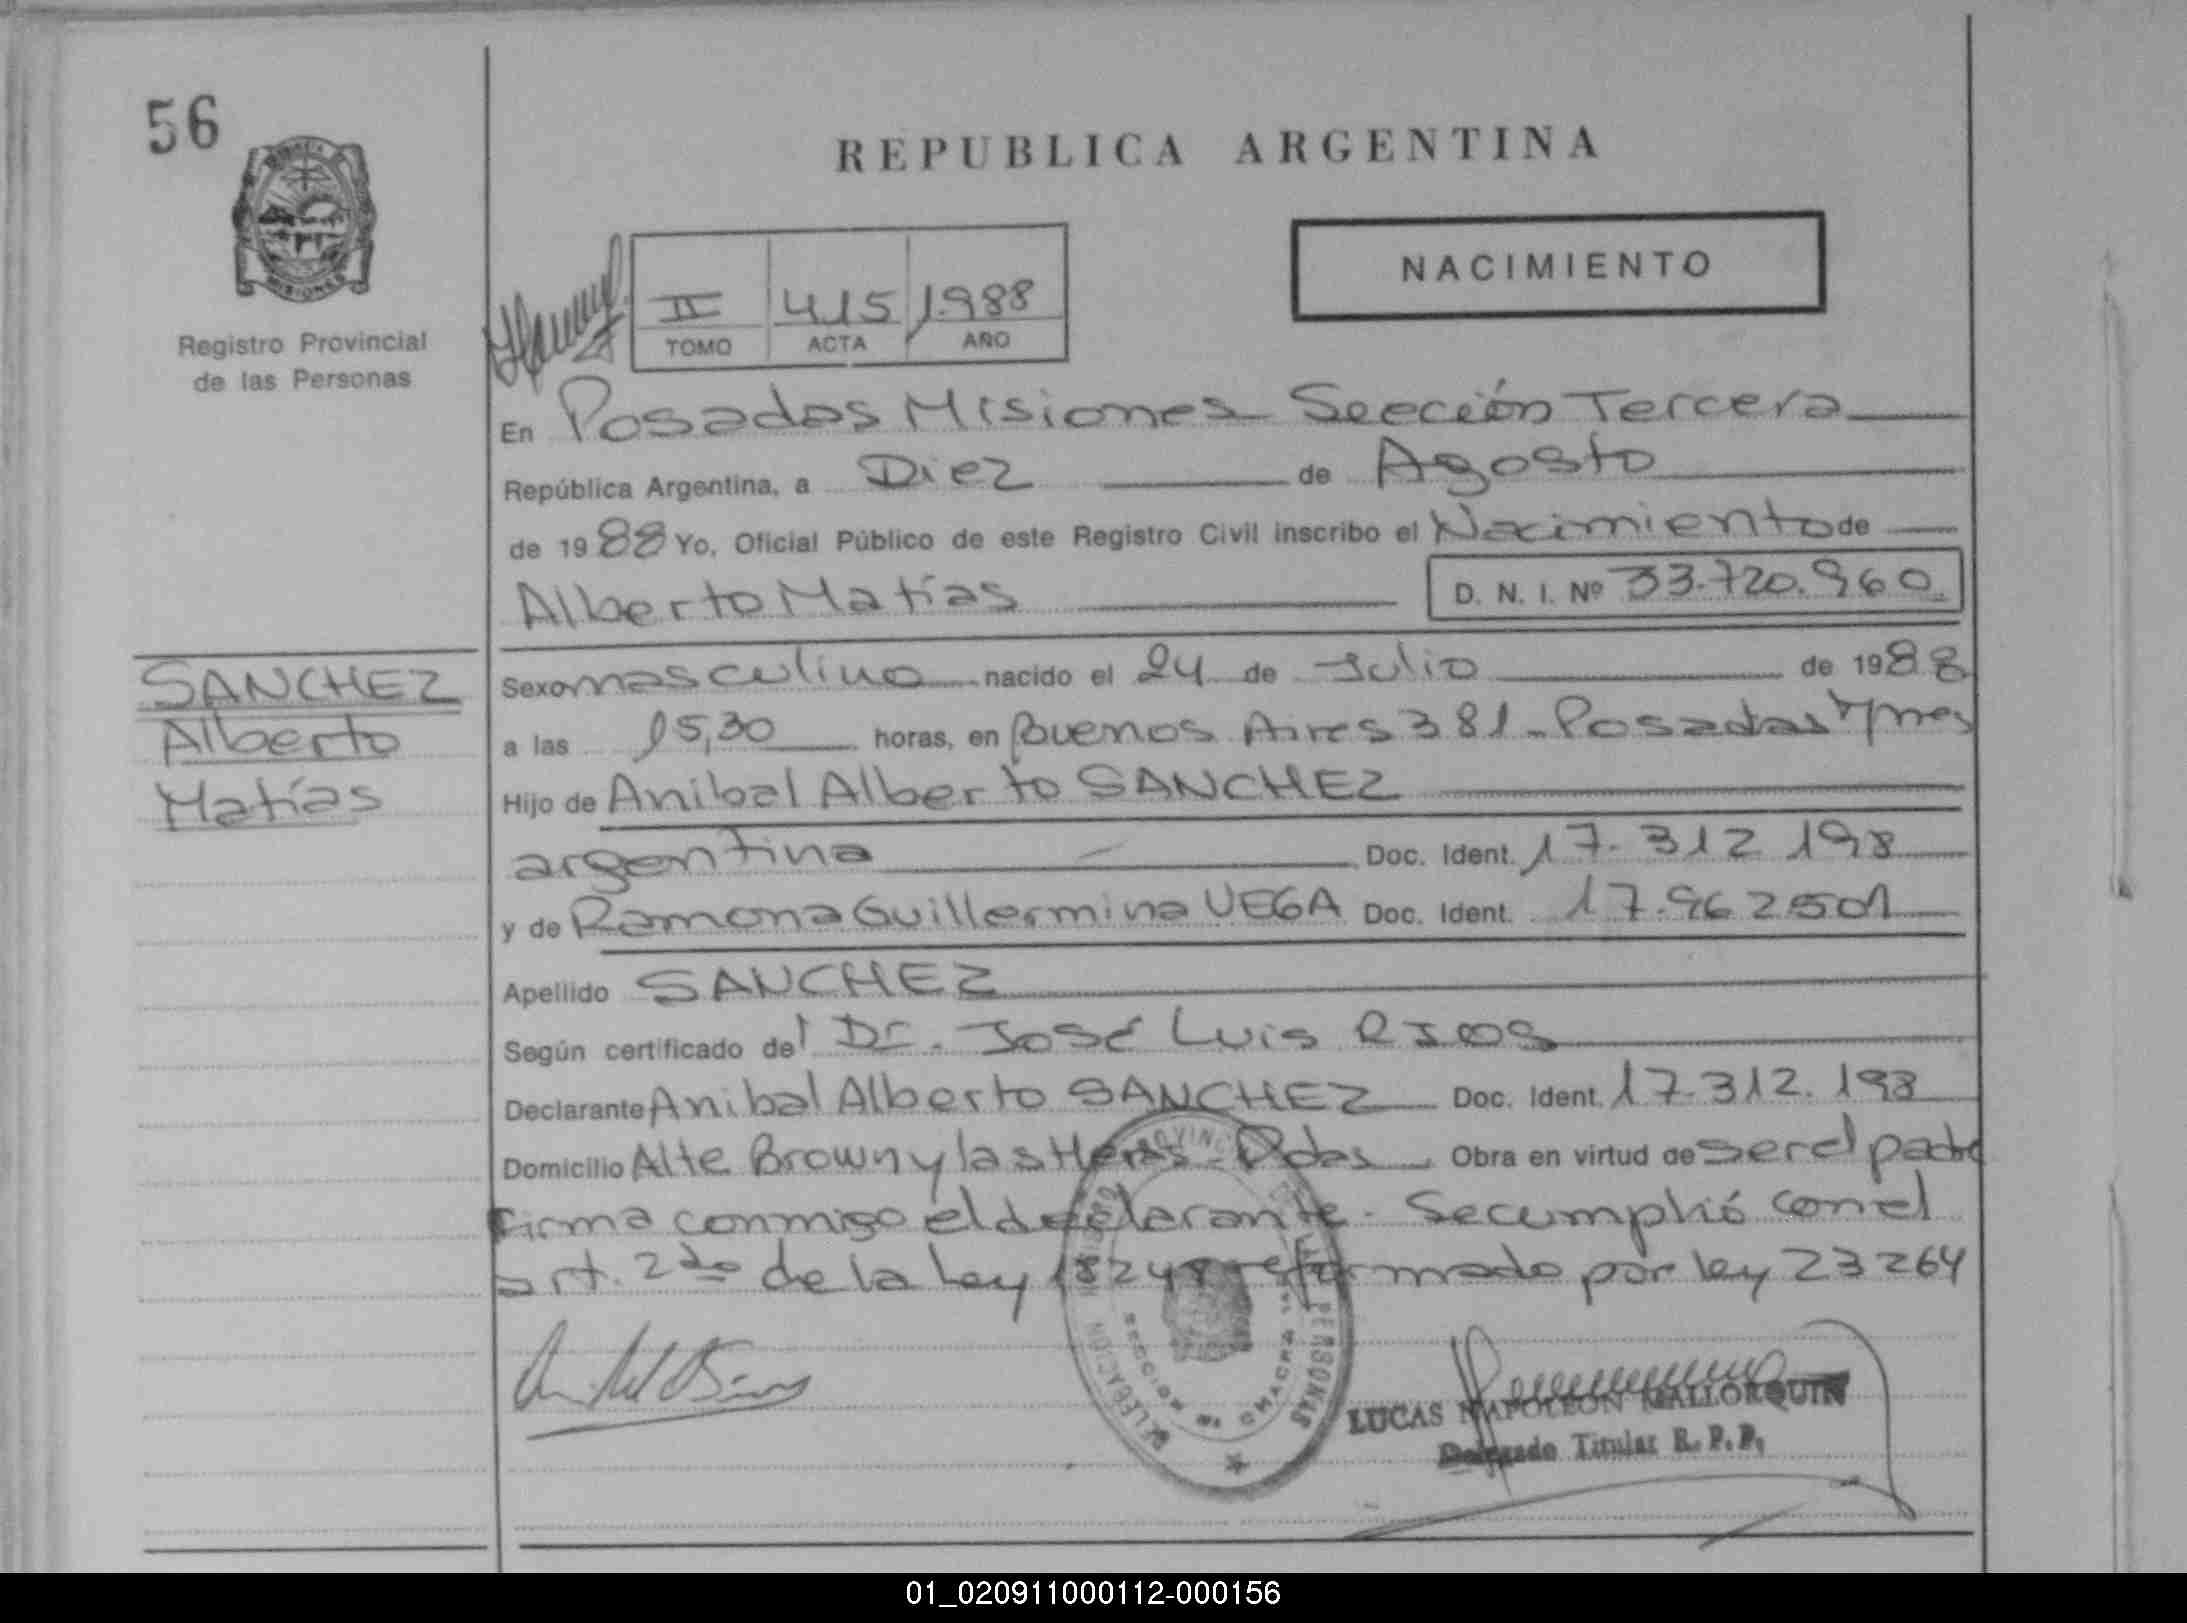 56
REPUBLICA ARGENTINA
NACIMIENTO
II 415 1.988
TOMO ACTA AÑO
Registro Provincial
de las Personas
En Posadas Misiones Sección Tercera
República Argentina, a Diez de Agosto
de 1988 Yo, Oficial Público de este Registro Civil inscribo el Nacimiento de
Alberto Matías D. N. I. Nº 33.720.960
SANCHEZ
Alberto
Matías
Sexo masculino nacido el 24 de Julio de 1988
a las 15,30 horas, en Buenos Aires 381 - Posadas Mnes
Hijo de Anibal Alberto SANCHEZ
argentina Doc. Ident. 17.312 198
y de Ramona Guillermina VEGA Doc. Ident. 17.962501
Apellido SANCHEZ
Según certificado del Dr. José Luis RIOS
Declarante Anibal Alberto SANCHEZ Doc. Ident. 17.312.198
Domicilio Alte Brown y las Heras - Pdas Obra en virtud de ser el padre
firma conmigo el declarante. Se cumplió con el
art. 2do de la Ley 18248 reformado por ley 23264
LUCAS NAPOLEON MALLORQUIN
Delegado Titular R. P. P.
01_020911000112-000156